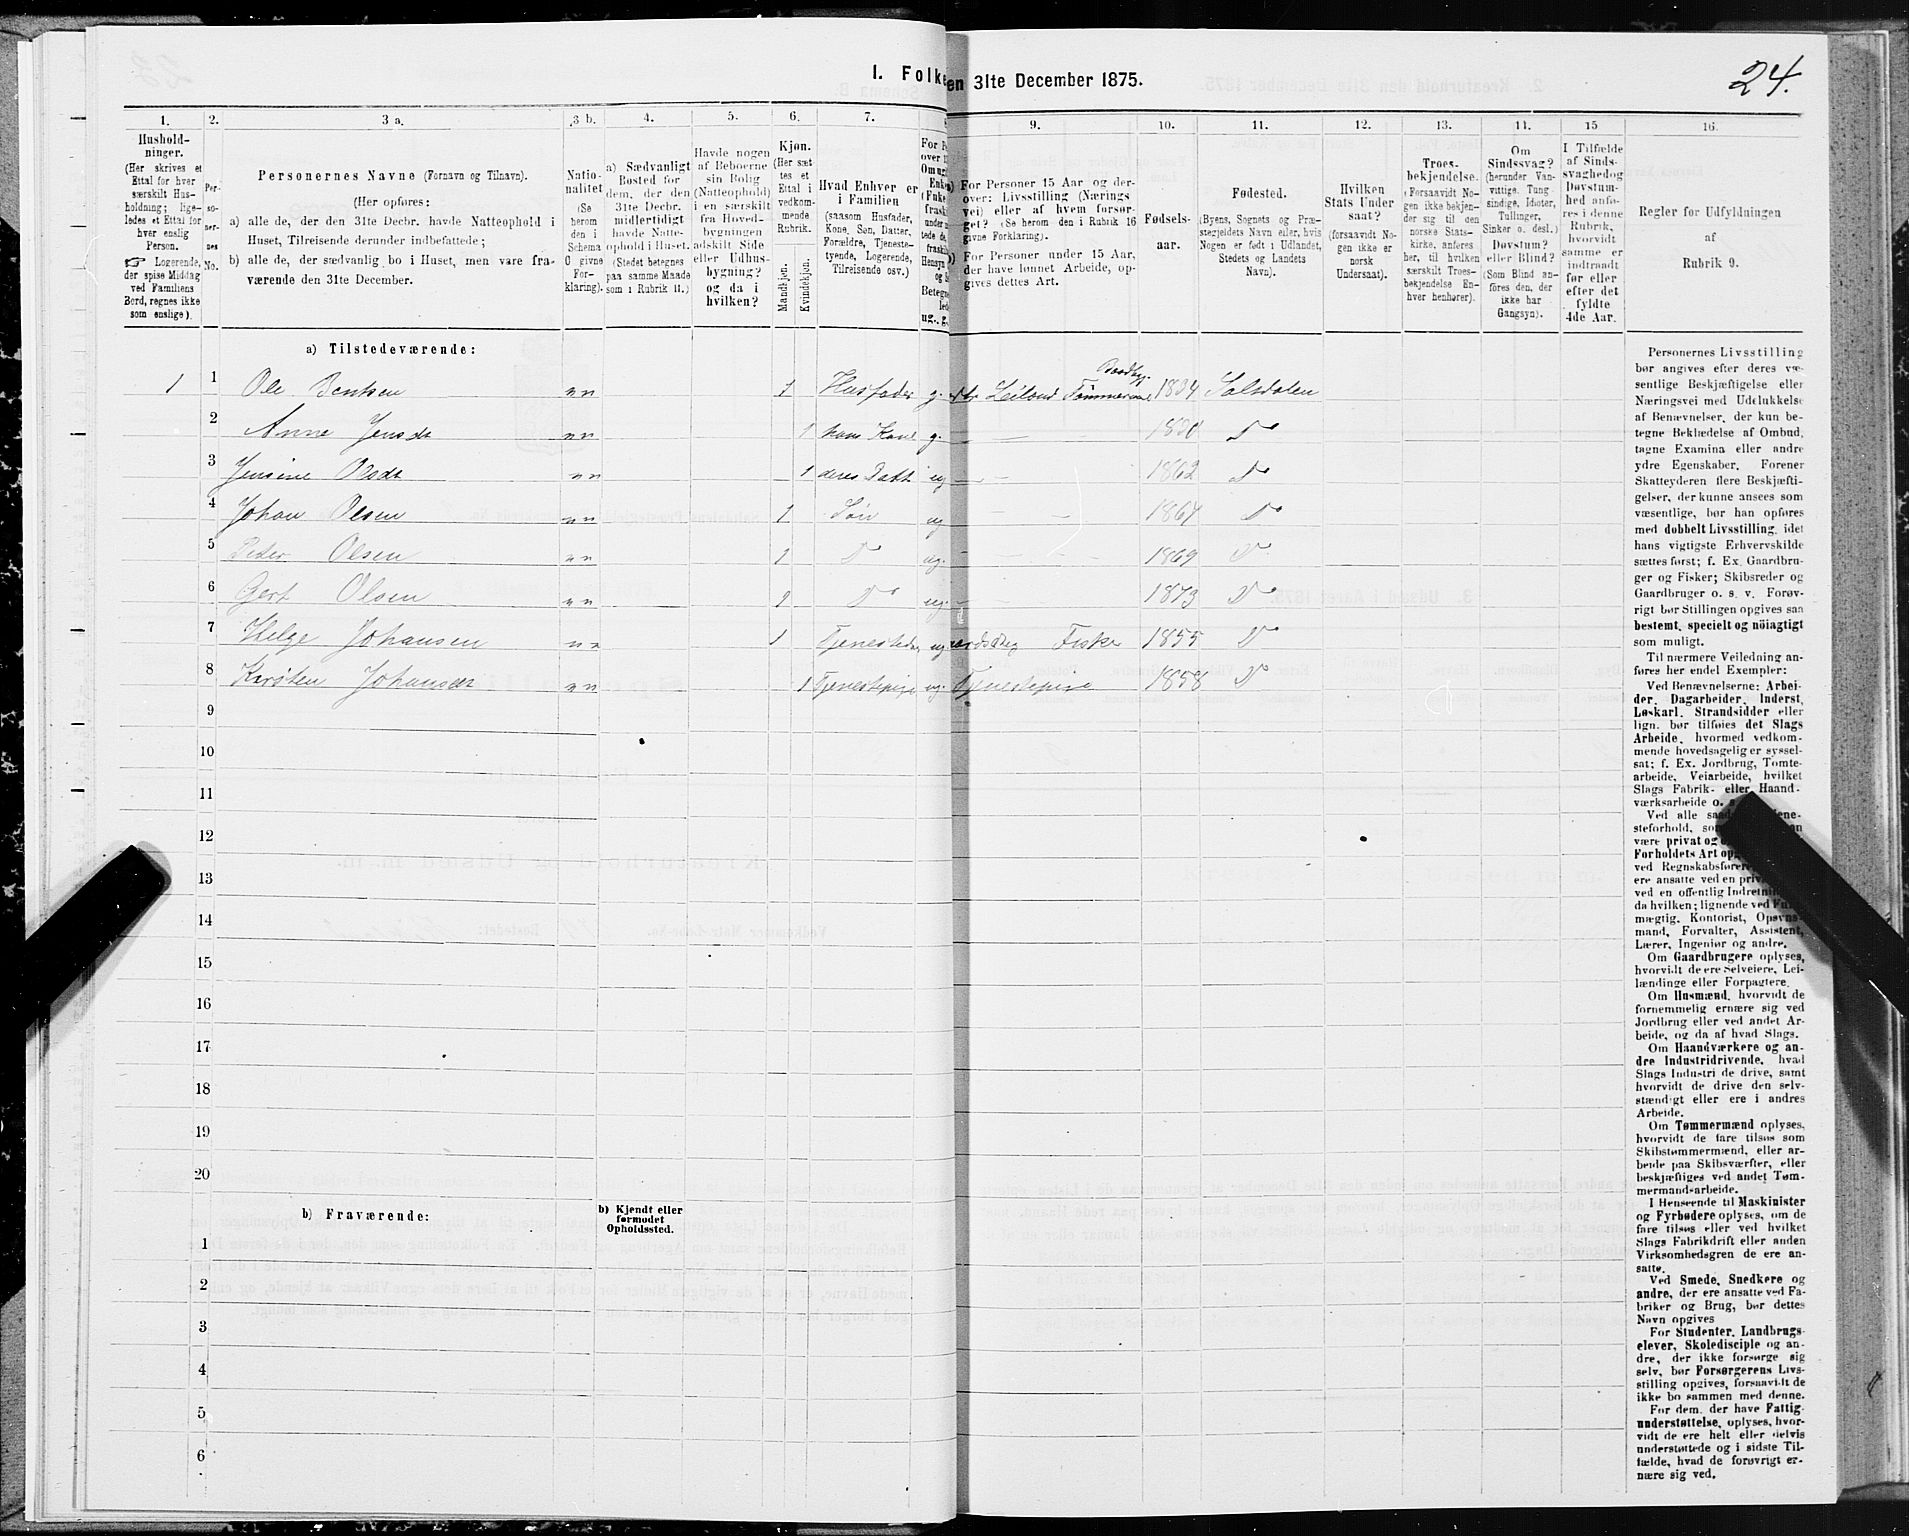 24.
I. Folke
en 31te December 1875.
1.
2.
3 a.
3 b.
4.
5.
6.
7.
9.
10.
11.
12.
13.
14.
15
16.
Hushold-
ninger.
(Her skrives et
Ettal for hver
særskilt Hus-
holdning; lige-
ledes et Ettal for
hver enslig
Person.
☞ Logerende,
der spise Middag
ved Familiens
Bord, regnes ikke
som enslige).
Per-
so-
ner-
nes
No.
Personernes Navne (Fornavn og Tilnavn).
(Her opføres:
a) alle de, der den 31te Decbr. havde Natteophold i
Huset, Tilreisende derunder indbefattede;
b) alle de, der sædvanlig bo i Huset, men vare fra-
værende den 31te December.
Natio-
nalitet
(Se
herom
den i
Schema
O givne
For-
klaring).
a) Sædvanligt
Bosted for
dem, der den
31te Decbr.
midlertidigt
havde Natte-
ophold i Huset.
(Stedet betegnes
paa samme Maade
som i Rubrik 11.)
Havde nogen
af Beboerne
sin Bolig
(Natteophold)
i en særskilt
fra Hoved-
bygningen
adskilt Side
eller Udhus-
bygning?
og da i
hvilken?
Kjøn.
(Her sæt-
tes et
Ettal i
vedkom-
mende
Rubrik.
Mandkjøn.
Kvindekjøn.
Hvad Enhver er
i Familien
(saasom Husfader,
Kone, Søn, Datter,
Forældre, Tjeneste-
tyende, Logerende,
Tilreisende osv.)
For P
over 1
Om ug
Enke
(Enke
fraski
ug., g.
a) For Personer 15 Aar og der-
over: Livsstilling (Nærings
vei) eller af hvem forsør-
get? (Se herom den i Rubrik 16
givne Forklaring).
b) For Personer under 15 Aar,
der have lønnet Arbeide, op-
gives dettes Art.
Fødsels-
aar.
Fødested.
(Byens, Sognets og Præ-
stegjeldets Navn eller, hvis
Nogen er født i Udlandet,
Stedets og Landets
Navn).
Hvilken
Stats Under
saat?
(forsaavidt No-
gen ikke er
norsk
Undersaat).
Troes-
bekjendelse.
(Forsaavidt No-
gen ikke bekjen-
der sig til den
norske Stats-
kirke, anføres
her, til hvilken
særskilt Troes-
bekjendelse En-
hver henhører).
Om
Sindssvag?
(herunder Van-
vittige, Tung
sindige, Idioter,
Tullinger,
Sinker o. desl.)
Døvstum?
eller Blind?
(Som Blind an-
føres den, der
ikke har
Gangsyn).
I Tilfælde
af Sinds-
svaghed og
Døvstum-
hed anfø-
res i denne
Rubrik,
hvorvidt
samme er
indtraadt
før eller
efter det
fyldte
4de Aar.
Regler for Udfyldningen
af
Rubrik 9.
a) Tilstedeværende:
1 1 Ole Bentsen nn 1 Husfader g. Leilænd Tømmerm 1834 Saltdalen
2 Anne Jensdt nn 1 hans Kone g. - - 1830 Do
3 Jensine Olsdt nn 1 deres Datt ug - - 1862 Do
4 Johan Olsen nn 1 Søn ug - - 1867 Do
5 Peder Olsen nn 1 Do ug. - - 1869 Do
6 Gert Olsen nn 1 Do ug. - 1873 Do
7 Helge Johansen nn 1 ug Fisker 1855 Do
8 Kirsten Johansdt nn 1 Tjenestepige ug. Tjenestepige 1858 Do
9
10
11
12
13
14
15
16
17
18
19
20
b) Fraværende:
b) Kjendt eller
formodet
Opholdssted.
1
2
3
4
5
6
Personernes Livsstilling
bør angives efter deres væ-
sentlige Beskjæftigelse eller
Næringsvei med Udelukkelse
af Benævnelser, der kun be-
tegne Beklædelse af Ombud,
tagne Examina eller andre
ydre Egenskaber. Forener
Skatteyderen flere Beskjæfti-
gelser, der kunne ansees som
væsentlige, bør han opføres
med dobbelt Livsstilling, idet
hans vigtigste Erhvervskilde
sættes først; f. Ex. Gaardbru-
ger og Fisker; Skibsreder og
Gaardbruger o. s. v. Forøv-
rigt bør Stillingen opgives saa
bestemt, specielt og nöiagtigt
som muligt.
Til nærmere Veiledning an-
føres her endel Exempler:
Ved Benævnelserne: Arbei-
der, Dagarbeider, Inderst,
Løskarl, Strandsidder eller
lign. bør tilføies det Slags
Arbeide, hvormed vedkom-
mende hovedsagelig er syssel-
sat; f. Ex. Jordbrug, Tomte-
arbeide, Veiarbeide, hvilket
Slags Fabrik- eller Haand-
værksarbeide o. s
Ved alle
steforhold,
være privat og
Forholdets Art
ved Regnskabsføre
ere ansatte ved en
ved en offentlig Indretn
da hvilken; lignende ved
mægtig, Kontorist, Opsyns-
mand, Forvalter, Assistent,
Lærer, Ingeniør og andre.
Om Gaardbrugere oplyses,
hvorvidt de ere Selveiere, Lei-
lændinge eller Forpagtere.
Om Husmænd, hvorvidt de
fornemmelig ernære sig ved
Jordbrug eller ved andet Ar-
beide, og da af hvad Slags.
Om Haandværkere og an-
dre Industridrivende, hvad
Slags Industri de drive, samt
hvorvidt de drive den selv-
stændigt eller ere i andres
Arbeide.
Om Tømmermænd oplyses,
hvorvidt de fare tilsøs som
Skibstømmermænd, eller ar-
beide paa Skibsværfter, eller
beskjæftiges ved andet Tøm-
mermandsarbeide.
I Henseende til Maskinister
og Fyrbødere oplyses, om de
fare tilsøs eller ved hvilket
Slags Fabrikdrift eller anden
Virksomhedsgren de ere an-
satte.
Ved Smede, Snedkere og
andre, der ere ansatte ved Fa-
briker og Brug, bør dettes
Navn opgives
For Studenter, Landbrugs-
elever, Skoledisciple og an-
dre, der ikke forsørge sig
selv, bør Forsørgerens Livs-
stilling opgives, forsaavidt de
ikke bo sammen med denne.
For dem, der have Fattig-
understøttelse, oplyses, hvor-
vidt de ere helt eller delvis
understøttede og i sidste Til-
fælde, hvad de forøvrigt er-
nære sig ved.